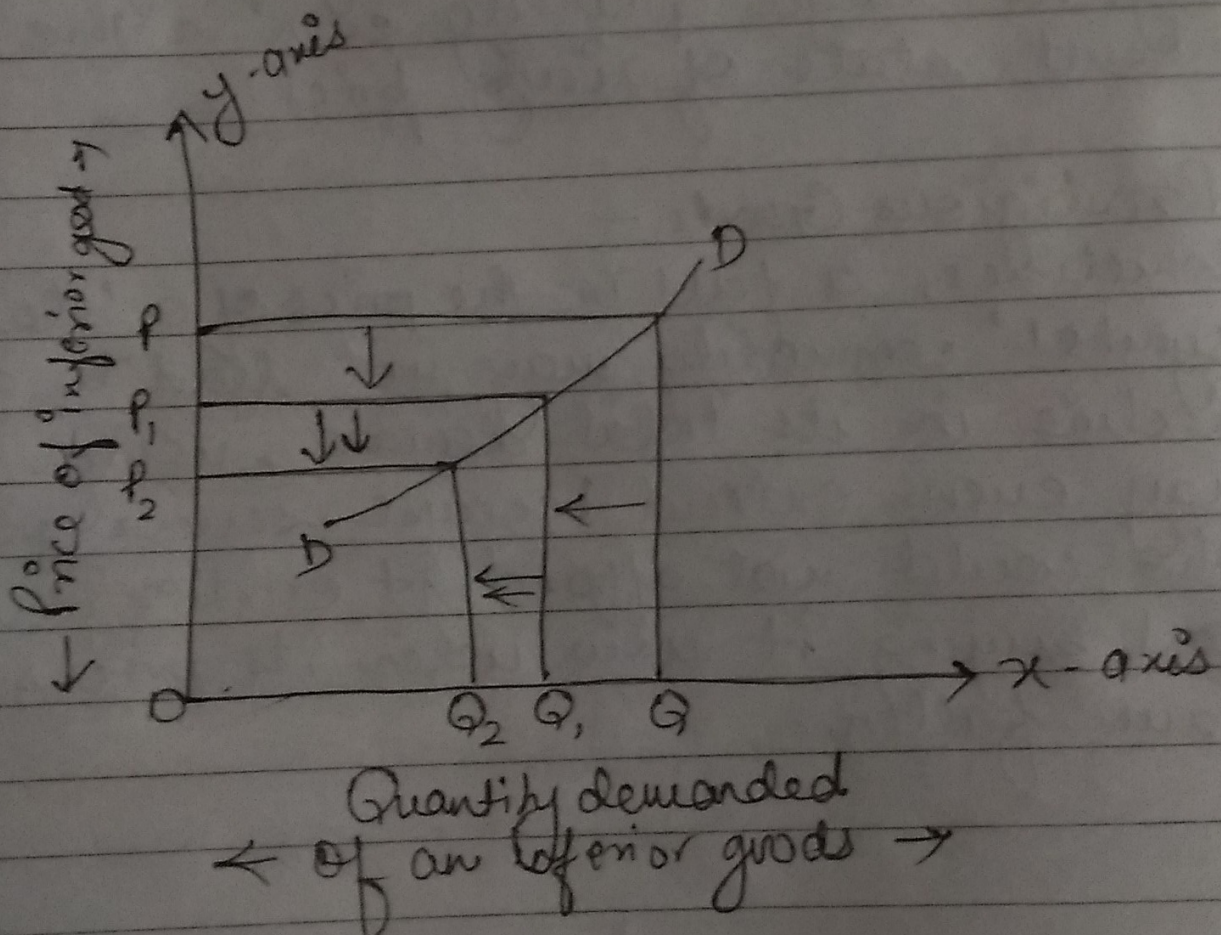 y-axis
← Price of inferior good →
D
P
P1
P2
D
O
Q2 Q1 Q
x-axis
Quantity demanded
← of an inferior goods →